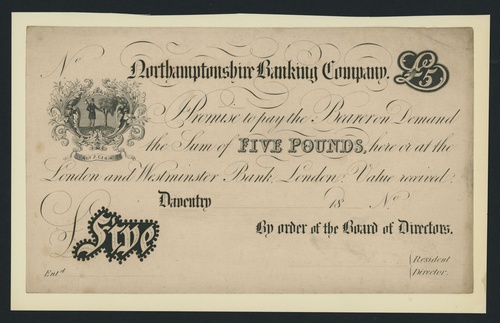 No
Northamptonshire Banking Company.
£5
Promise to pay the Bearer on Demand
the Sum of FIVE POUNDS, here or at the
London and Westminster Bank, London, Value received:
Daventry 18 No
By order of the Board of Directors.
£ Five
Entd
Resident
Director.